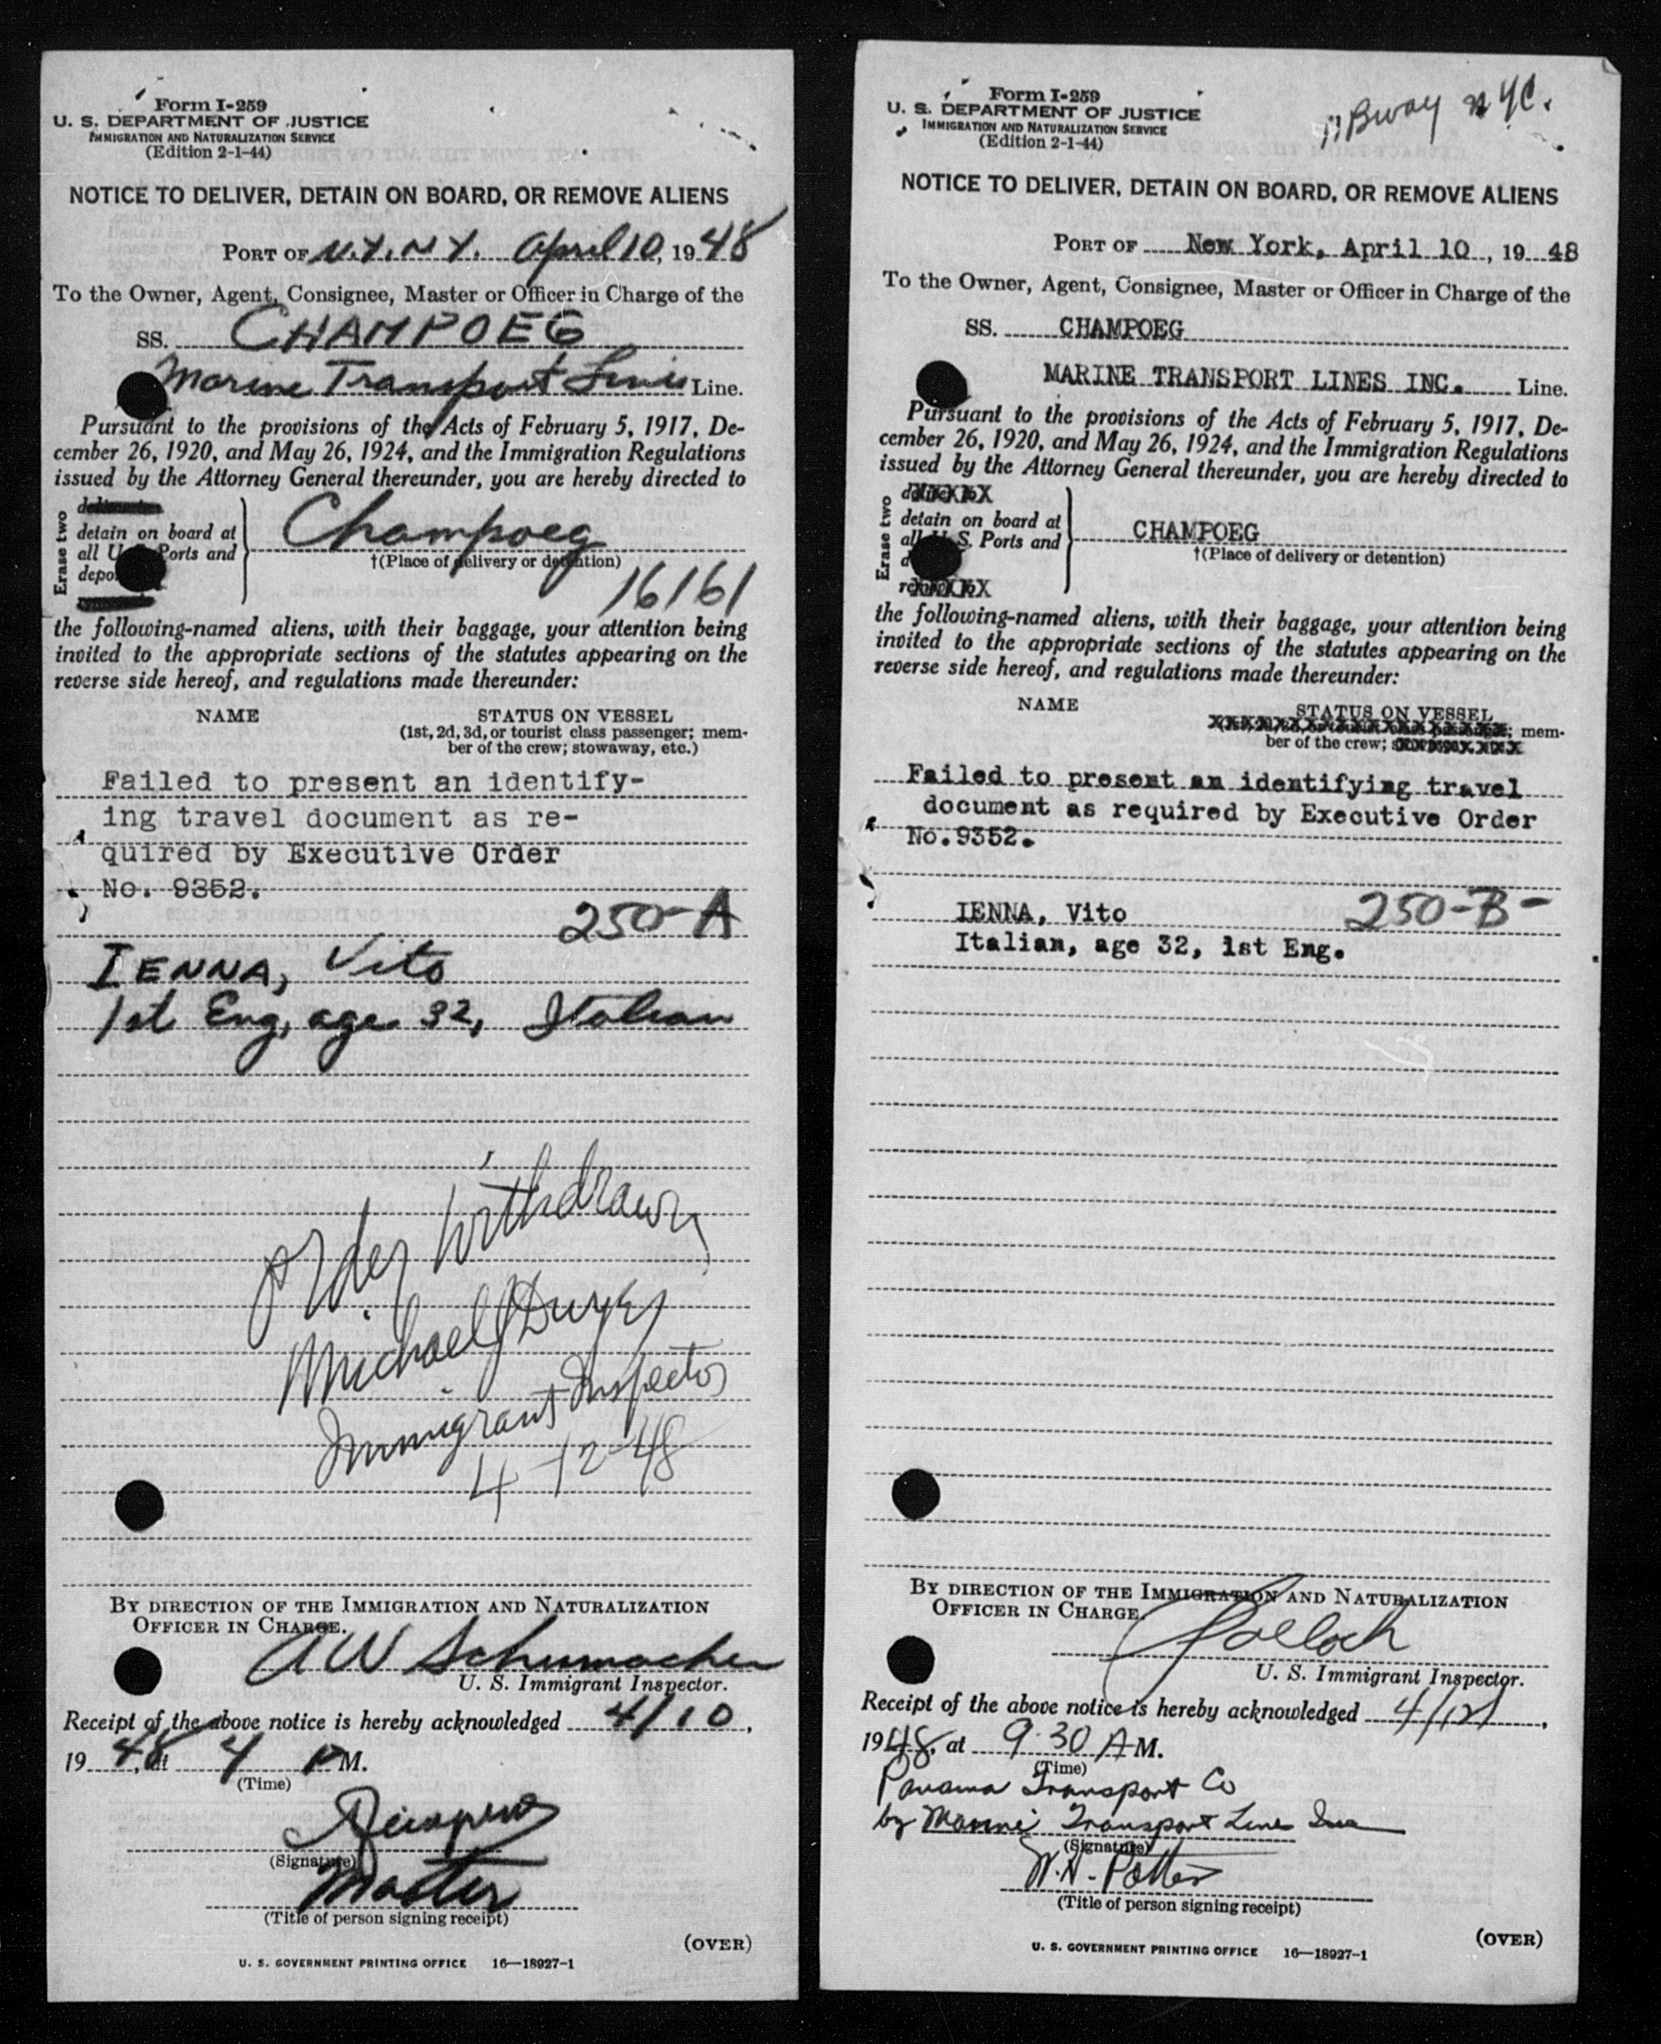 Form I-259
U. S. DEPARTMENT OF JUSTICE
IMMIGRATION AND NATURALIZATION SERVICE
(Edition 2-1-44)
NOTICE TO DELIVER, DETAIN ON BOARD, OR REMOVE ALIENS
PORT OF N.Y. N.Y. April 10, 1948
To the Owner, Agent, Consignee, Master or Officer in Charge of the
SS. CHAMPOEG
Marine Transport Lines Line.
Pursuant to the provisions of the Acts of February 5, 1917, De-
cember 26, 1920, and May 26, 1924, and the Immigration Regulations
issued by the Attorney General thereunder, you are hereby directed to
Erase two
detain on board at
all U. S. Ports and
Champoeg
†(Place of delivery or detention)
16161
the following-named aliens, with their baggage, your attention being
invited to the appropriate sections of the statutes appearing on the
reverse side hereof, and regulations made thereunder:
NAME STATUS ON VESSEL
(1st, 2d, 3d, or tourist class passenger; mem-
ber of the crew; stowaway, etc.)
Failed to present an identify-
ing travel document as re-
quired by Executive Order
No. 9352.
250-A
IENNA, Vito
1st Eng, age 32, Italian
Order Withdrawn
Michael J Dwyer
Immigrant Inspector
4-12-48
BY DIRECTION OF THE IMMIGRATION AND NATURALIZATION
OFFICER IN CHARGE.
A W Schumacher
U. S. Immigrant Inspector.
Receipt of the above notice is hereby acknowledged 4/10,
1948, at 4 P M.
(Time)
(Signature)
Master
(Title of person signing receipt)
(OVER)
U. S. GOVERNMENT PRINTING OFFICE 16—18927-1
11 Bway NYC.
Form I-259
U. S. DEPARTMENT OF JUSTICE
IMMIGRATION AND NATURALIZATION SERVICE
(Edition 2-1-44)
NOTICE TO DELIVER, DETAIN ON BOARD, OR REMOVE ALIENS
PORT OF New York, April 10, 1948
To the Owner, Agent, Consignee, Master or Officer in Charge of the
SS. CHAMPOEG
MARINE TRANSPORT LINES INC. Line.
Pursuant to the provisions of the Acts of February 5, 1917, De-
cember 26, 1920, and May 26, 1924, and the Immigration Regulations
issued by the Attorney General thereunder, you are hereby directed to
Erase two
detain on board at
all U. S. Ports and
CHAMPOEG
†(Place of delivery or detention)
the following-named aliens, with their baggage, your attention being
invited to the appropriate sections of the statutes appearing on the
reverse side hereof, and regulations made thereunder:
NAME STATUS ON VESSEL
mem-
ber of the crew;
Failed to present an identifying travel
document as required by Executive Order
No.9352.
IENNA, Vito 250-B-
Italian, age 32, 1st Eng.
BY DIRECTION OF THE IMMIGRATION AND NATURALIZATION
OFFICER IN CHARGE.
U. S. Immigrant Inspector.
Receipt of the above notice is hereby acknowledged 4/12,
1948, at 9:30 A M.
(Time)
Panama Transport Co
by Marine Transport Lines Inc
(Signature)
W.H. Potter
(Title of person signing receipt)
(OVER)
U. S. GOVERNMENT PRINTING OFFICE 16—18927-1